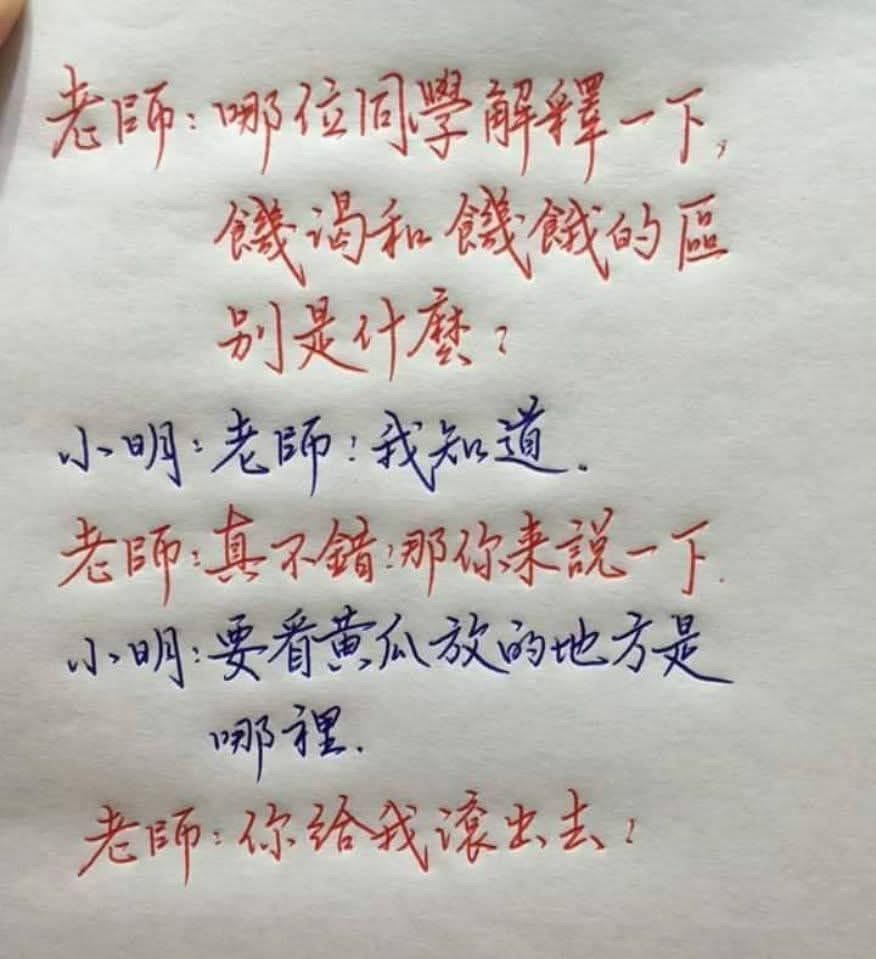 老師:哪位同學解釋一下,
饑渴和饑餓的區
別是什麼?
小明:老師!我知道.
老師:真不錯!那你来説一下.
小明:要看黄瓜放的地方是
哪裡.
老師:你给我滾出去!